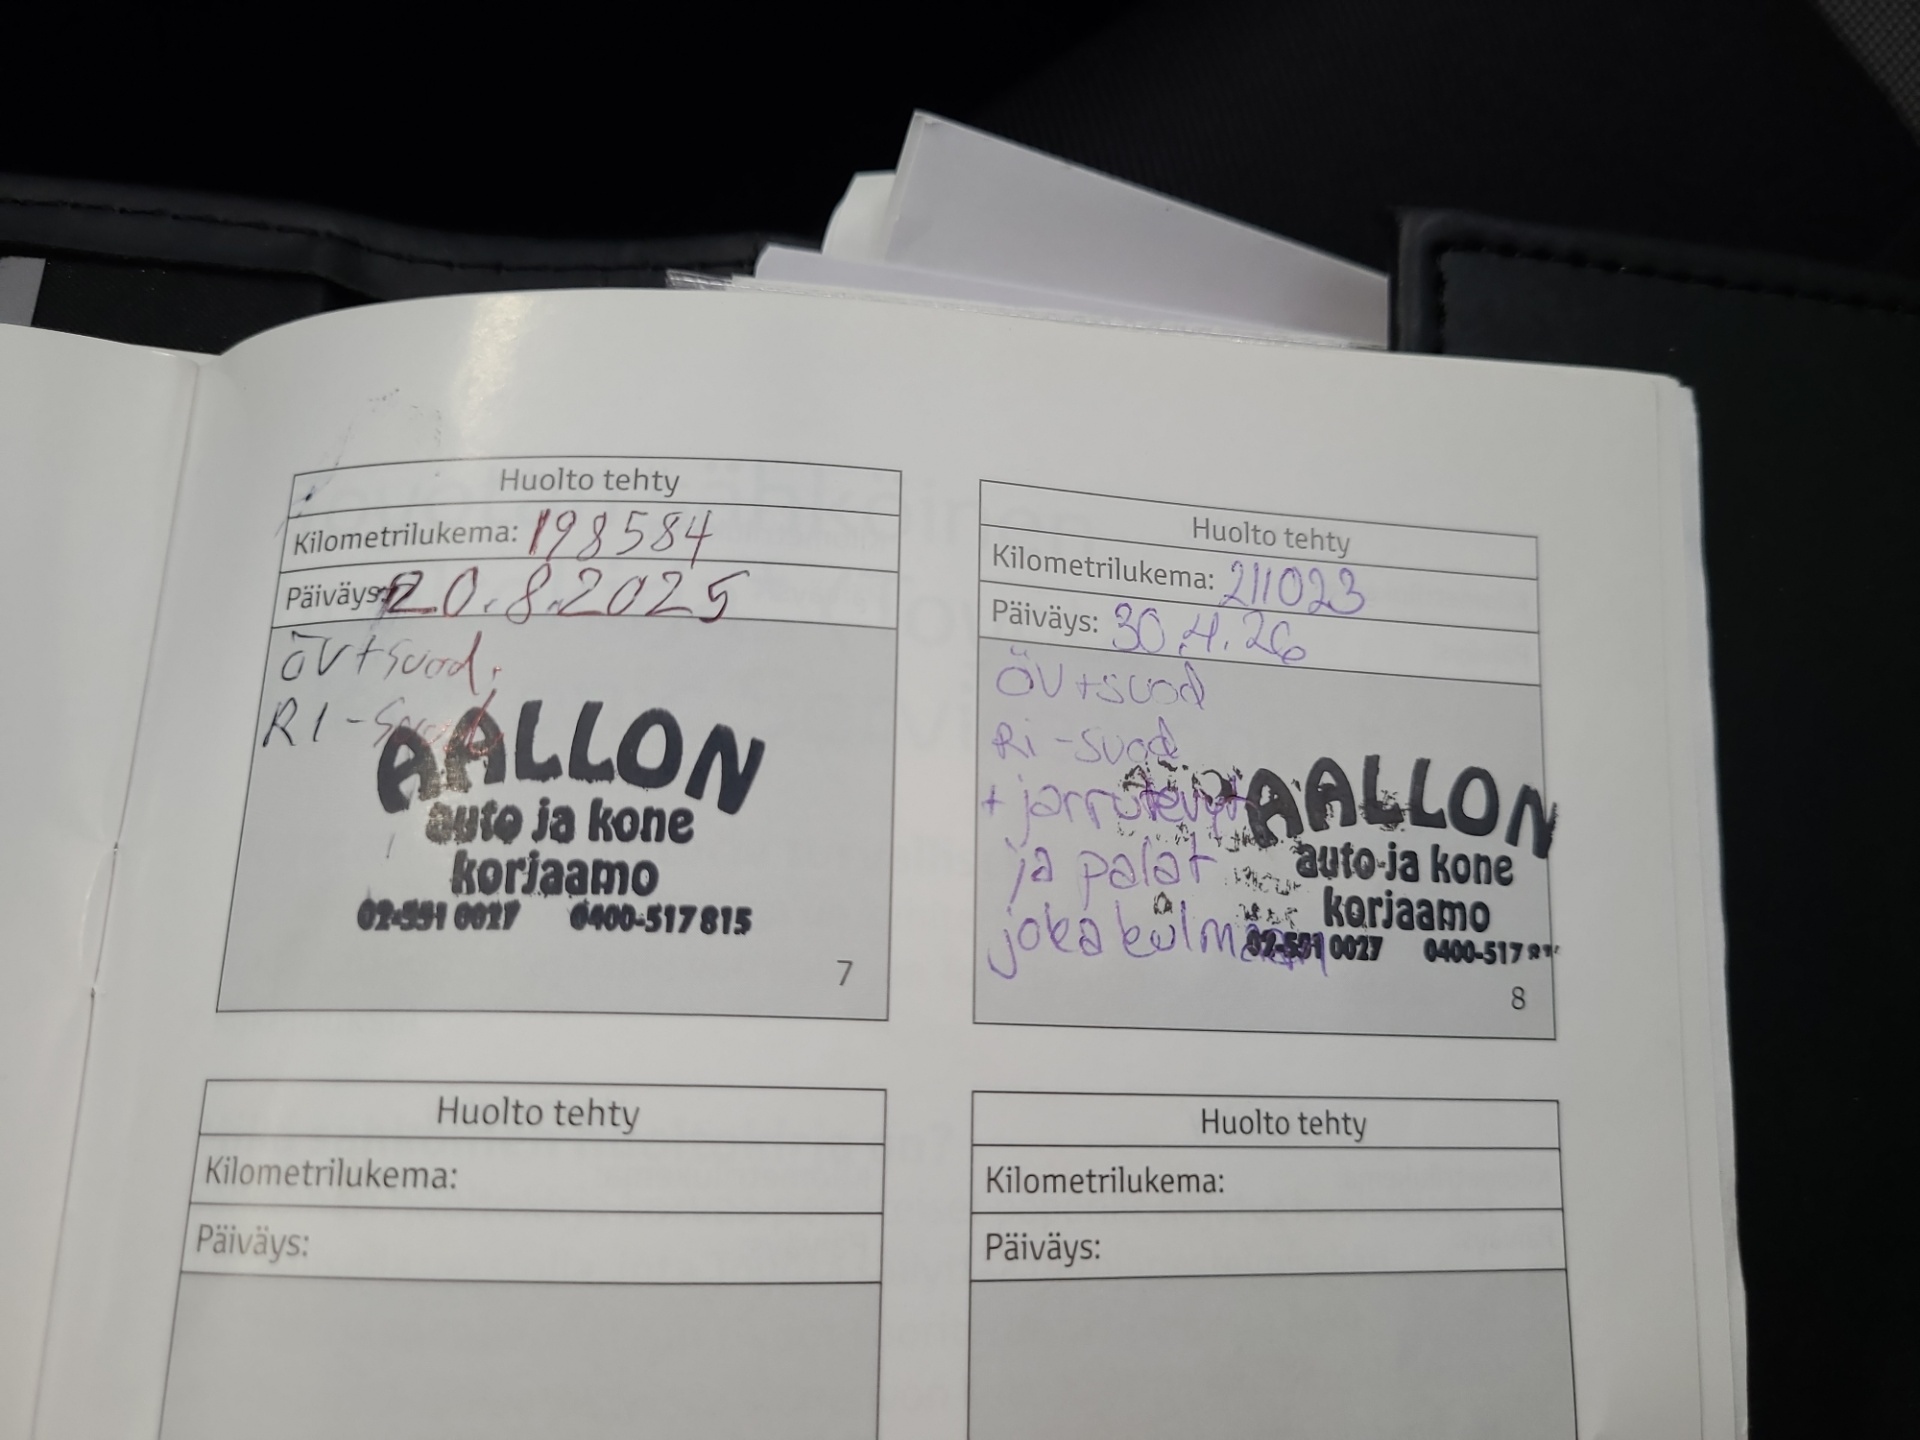 Huolto tehty
Kilometrilukema: 198584
Päiväys: 20.8.2025
ÖV+suod.
RI-Suod
AALLON
auto ja kone
korjaamo
02-551 0027 0400-517 815
7
Huolto tehty
Kilometrilukema: 211023
Päiväys: 30.4.26
ÖV+suod
Ri-suod
+ jarrulevyt
ja palat
joka kulmaan
AALLON
auto ja kone
korjaamo
02-551 0027 0400-517
8
Huolto tehty
Kilometrilukema:
Päiväys:
Huolto tehty
Kilometrilukema:
Päiväys: